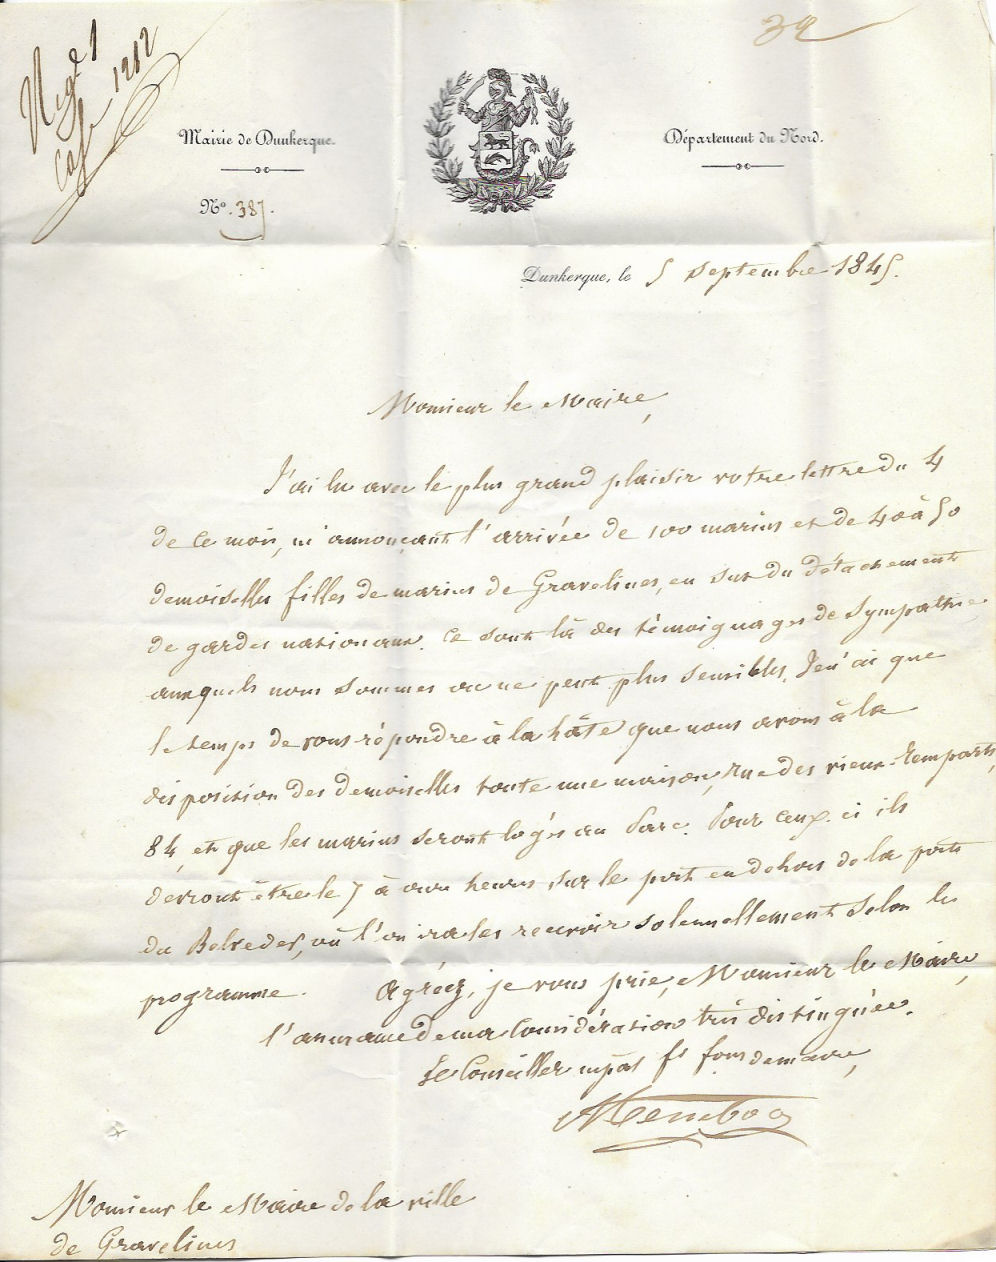 39
Neg.e 1
1212
Mairie de Dunkerque.
Département du Nord.
N.o 387.
Dunkerque, le 5 septembre 1845.
Monsieur le Maire,
J'ai lu avec le plus grand plaisir votre lettre du 4
de ce mois, m'annonçant l'arrivée de 100 marins et de 40 à 50
demoiselles filles de marins de Gravelines, en sus du détachement
de gardes nationaux. Ce sont là des témoignages de sympathie
auxquels nous sommes on ne peut plus sensibles. Je n'ai que
le temps de vous répondre à la hâte que nous avons à la
disposition des demoiselles toute une maison, rue des vieux-Remparts,
84, et que les marins seront logés au Parc. Pour ceux-ci ils
devront être le 7 à onze heures sur le port en dehors de la porte
du Belveder, où l'on ira les recevoir solennellement selon le
programme. Agréez, je vous prie, Monsieur le Maire,
l'assurance de ma considération très distinguée.
Le Conseiller mpal fs fons de maire,
Monsieur le Maire de la ville
de Gravelines